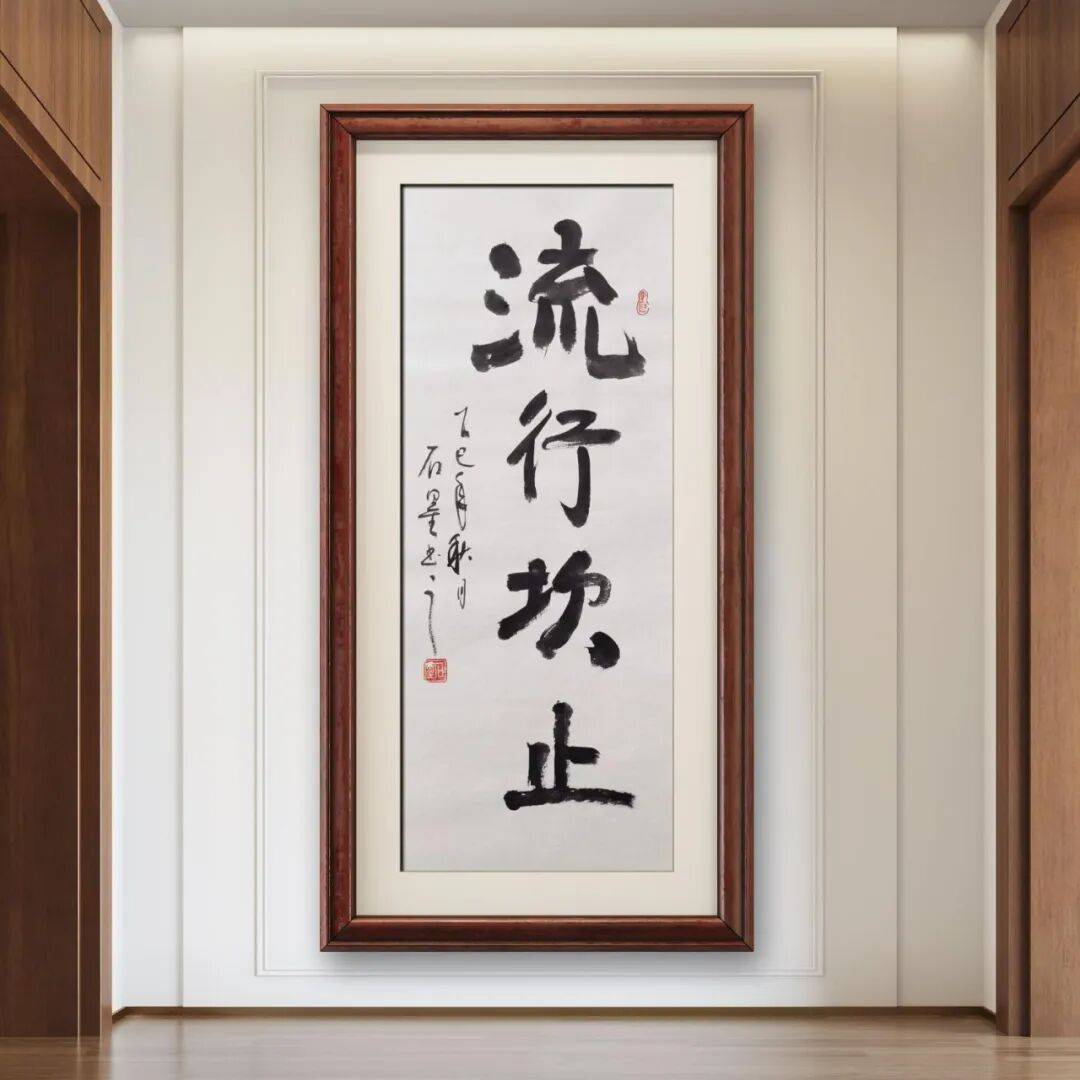 流行坎止
乙巳年秋月
石墨书